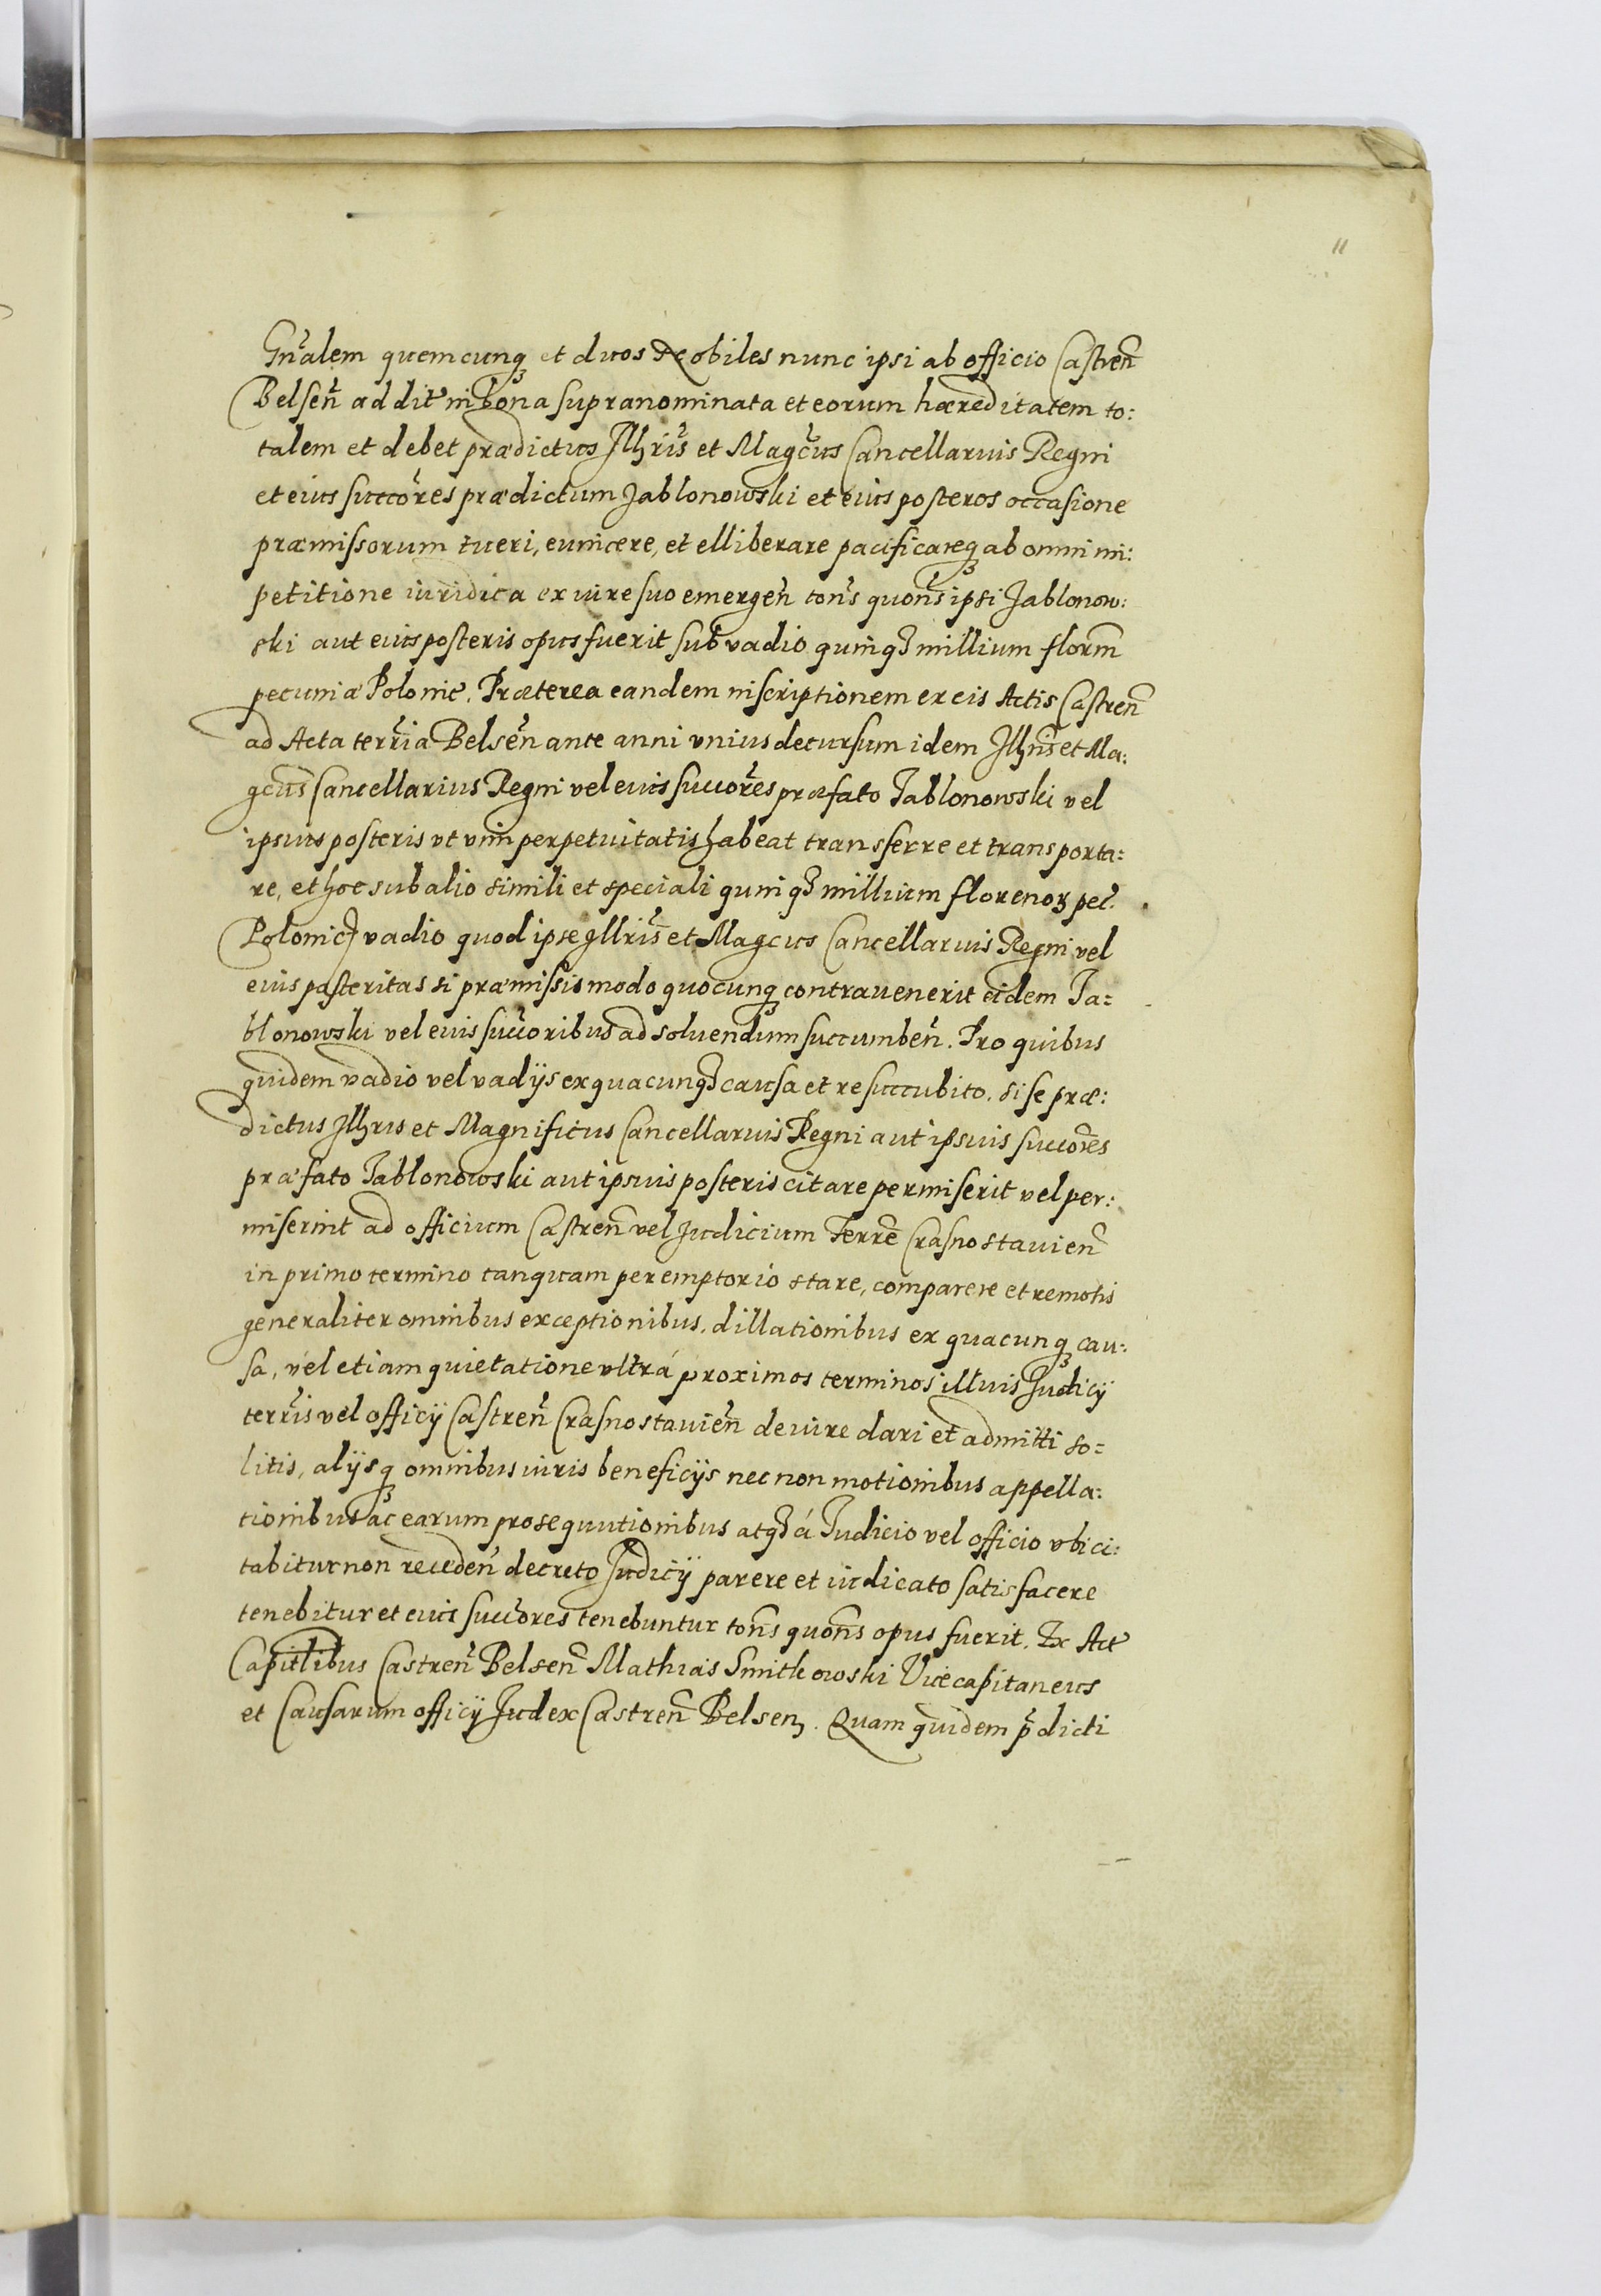 11
Gn̄alem quemcunq et duos Nobiles nunc ipsi ab officio Castren̄
Belsen̄ addit̄ in bona supranominata et eorum hæreditatem to:
talem et debet prædictus Jllris̄ et Magcūs Cancellarius Regni
et eius succōres prædictum Jablonowski et eius posteros occasione
præmissorum tueri, euincere, et elliberare pacificareq ab omni im:
petitione iuridica ex iure suo emergen̄ ton̄s quon̄s ipsi Jablonow:
ski aut eius posteris opus fuerit sub vadio quinq millium florm̄
pecuniæ Polonic̄. Præterea eandem inscriptionem ex eis Actis Castren̄
ad Acta terr̄ia Belsen̄ ante anni vnius decursum idem Jllris̄ et Ma:
gcūs Cancellarius Regni vel eius succōres præfato Jablonowski vel
ipsius posteris vt vim perpetuitatis habeat transferre et transporta:
re, et hoc sub alio simili et speciali quinq millium florenoꝝ pec̄.
Polonic̄ vadio quod ipse Jllris̄ et Magcus Cancellarius Regni vel
eius posteritas si præmissis modo quocunq contrauenerit eidem Ja:
blonowski vel eius succōribus ad soluendum succumben̄. Pro quibus
quidem vadio vel vadijs ex quacunq causa et re succubito, si se præ:
dictus Jllris et Magnificus Cancellarius Regni aut ipsius succōres
præfato Jablonowski aut ipsius posteris citare permiserit vel per:
miserint ad officium Castren̄ vel Judicium Terrē Crasnostauien̄
in primo termino tanquam peremptorio stare, comparere et remotis
generaliter omnibus exceptionibus, dillationibus ex quacunq cau:
sa, vel etiam quietatione vltrá proximos terminos illius Judicij
terr̄is vel officij Castren̄ Crasnostauien̄ de iure dari et admitti so:
litis, alijsq omnibus iuris beneficijs nec non motionibus appella:
tionibus ac earum prosequutionibus atq á Judicio vel officio vbi ci:
tabitur non receden̄ decreto Judicij parere et iudicato satisfacere
tenebitur et eius succōres tenebuntur ton̄s quon̄s opus fuerit. Ex Act̄
Capitlibus Castren̄ Belsen̄ Mathias Smitkowski Vicecapitaneus
et Causarum officij Judex Castren̄ Belsen. Quam quidem p̄dicti